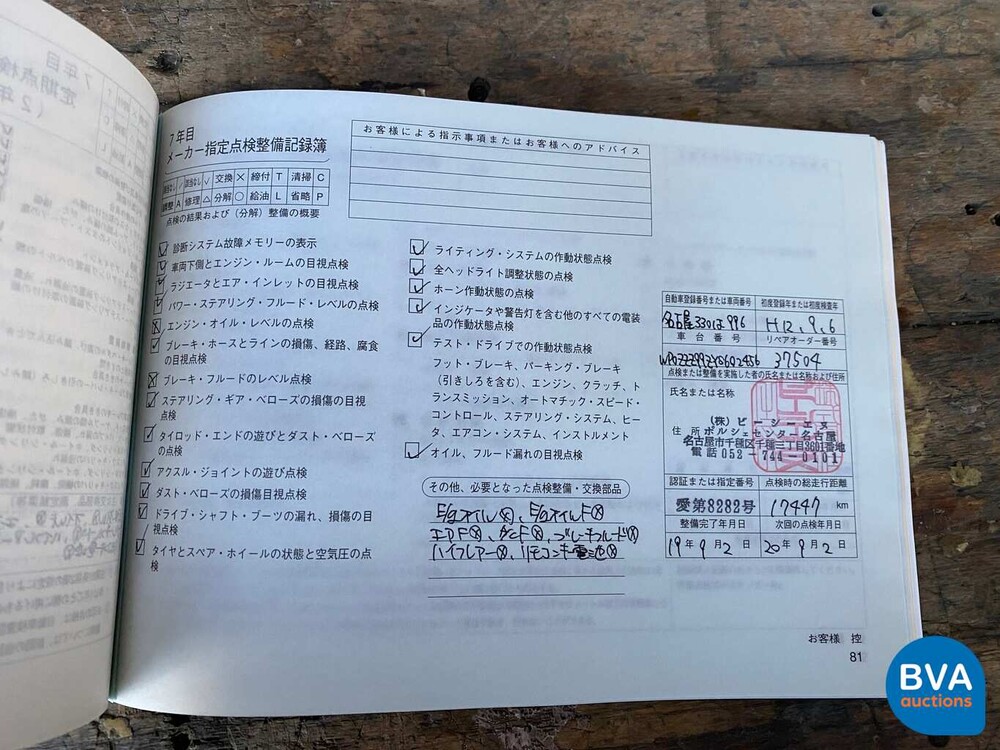 7年目
メーカー指定点検整備記録簿
交換 × 締付 T 清掃 C
調整 A 修理 △ 分解 ○ 給油 L 省略 P
点検の結果および（分解）整備の概要
お客様による指示事項またはお客様へのアドバイス
診断システム故障メモリーの表示
車両下側とエンジン・ルームの目視点検
ラジエータとエア・インレットの目視点検
パワー・ステアリング・フルード・レベルの点検
エンジン・オイル・レベルの点検
ブレーキ・ホースとラインの損傷、経路、腐食
の目視点検
ブレーキ・フルードのレベル点検
ステアリング・ギア・ベローズの損傷の目視
点検
タイロッド・エンドの遊びとダスト・ベローズ
の点検
アクスル・ジョイントの遊び点検
ダスト・ベローズの損傷目視点検
ドライブ・シャフト・ブーツの漏れ、損傷の目
視点検
タイヤとスペア・ホイールの状態と空気圧の点
検
ライティング・システムの作動状態点検
全ヘッドライト調整状態の点検
ホーン作動状態の点検
インジケータや警告灯を含む他のすべての電装
品の作動状態点検
テスト・ドライブでの作動状態点検
フット・ブレーキ、パーキング・ブレーキ
（引きしろを含む）、エンジン、クラッチ、ト
ランスミッション、オートマチック・スピード・
コントロール、ステアリング・システム、ヒー
タ、エアコン・システム、インストルメント
オイル、フルード漏れの目視点検
その他、必要となった点検整備・交換部品
E/gオイル⊗、E/gオイルF⊗
エアF⊗、A/CF⊗、ブレーキフルード⊗
ハイフレアー⊗、リモコンキー電池⊗
自動車登録番号または車両番号 初度登録年または初度検査年
名古屋330は996 H12.9.6
車台番号 リペアオーダー番号
37504
点検または整備を実施した者の氏名または名称および住所
氏名または名称
(株) ピーシーエヌ
住所 ポルシェセンター名古屋
名古屋市千種区千種三丁目3601番地
電話 052-744-0101
認証または指定番号 点検時の総走行距離
愛第8282号 17447 km
整備完了年月日 次回の点検年月日
19年9月2日 20年9月2日
お客様 控
81
BVA
auctions